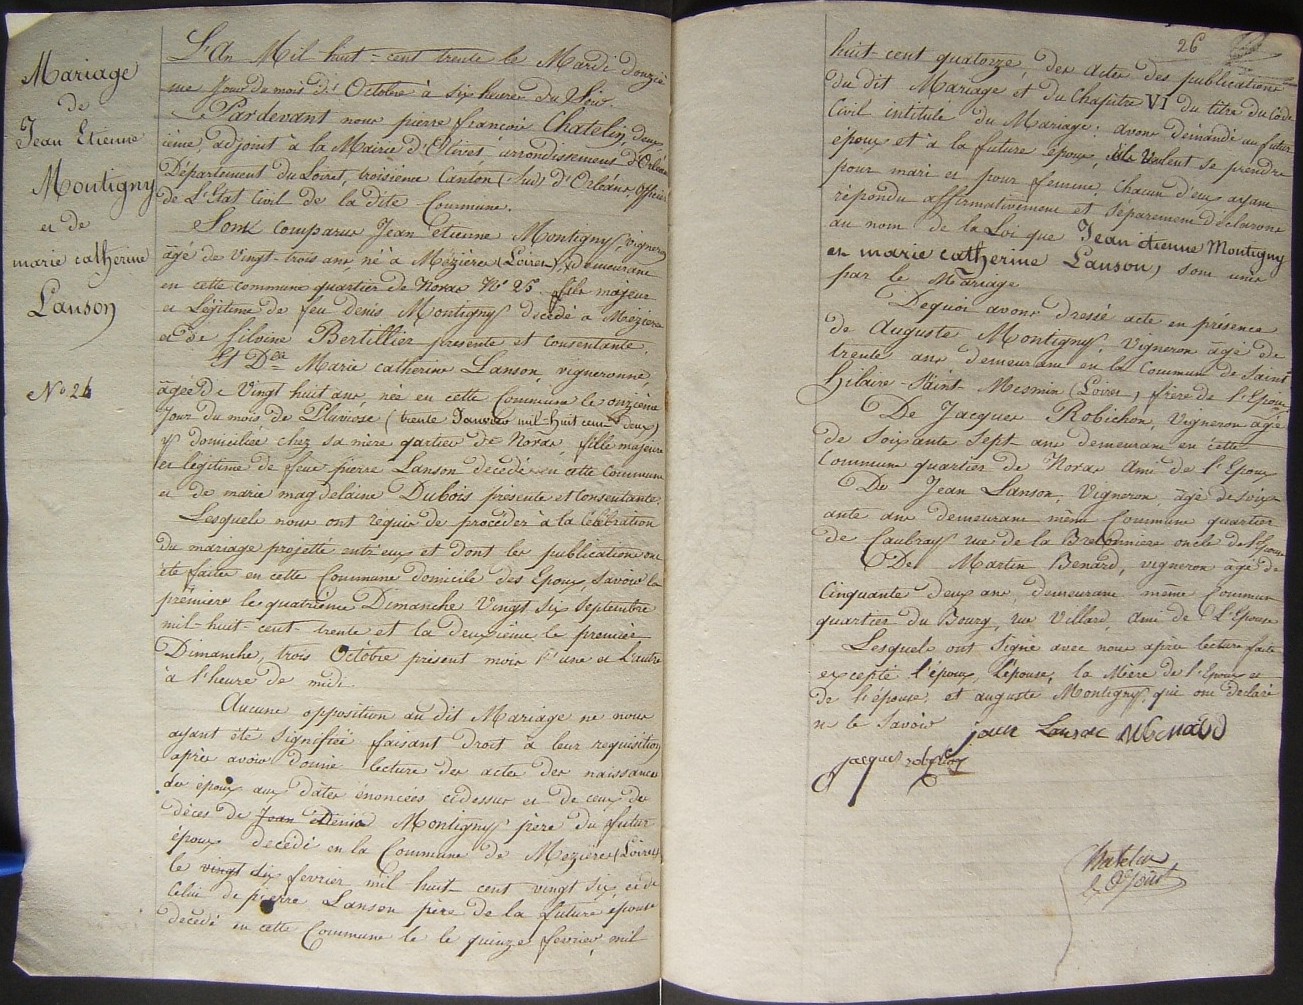 Mariage
de
Jean Etienne
Montigny
et de
marie catherine
Lanson
N° 24
L'An Mil huit-cent trente le Mardi douziè
me Jour du mois d'Octobre à six heures du Soir.
Pardevant nous pierre françois Chatelin, deux
ième, adjoint à la Mairie d'Olivet, arrondissement d'Orléans
Département du Loiret, troisième Canton (Sud) d'Orléans, Officier
de L'Etat Civil de la dite Commune.
Sont comparus Jean etienne Montigny Vigneron
âgé de Vingt-trois ans, né à Mézières (Loiret), demeurant
en cette commune quartier de Noras N° 25 fils majeur
et Légitime de feu Denis Montigny décédé à Mezières
et de Silvine Bertillier présente et consentante.
Et Dlle Marie catherine Lanson, vigneronne,
âgée de Vingt huit ans, née en cette Commune le onzième
Jour du mois de Pluviose (trente Janvier mil-huit cent deux)
y domiciliée chez sa mère qartier de Noras, fille majeure
et legitime de feue pierre Lanson décédé en cette Commune
et de marie magdelaine Dubois présente et Consentante.
Lesquels nous ont requis de procéder à la Celébration
du mariage projetté entr'eux et dont les publications ont
été faites en cette Commune domicile des Epoux, Savoir la
première le quatrième Dimanche Vingt Six Septembre
mil-huit-cent-trente et la deuxième le premier
Dimanche, trois Octobre présent mois l'une et L'autre
à l'heure de midi.
Aucune opposition au dit Mariage ne nous
ayant été Signifiée faisant Droit à leur requisition
après avoir donné lecture des actes des naissances
des époux aux dates énoncées cidessus et de ceux de
décès de Jean Denis Montigny père du futur
époux décédé en la Commune de Mézières (Loiret)
le vingt dix fevrier mil huit-cent vingt six, et de
Celui de pierre Lanson père de la future épouse
décédé en cette Commune le le quinze fevrier, mil
26
huit-cent quatorze, des Actes des publications
du dit Mariage et du Chapitre VI du titre du Code
Civil intitulé du Mariage; avons demandé au futur
époux et à la future épouse, s'ils Veulent se prendre
pour mari et pour femme, Chacun d'eux ayant
répondu affirmativement et séparement déclarons
au nom de la Loi que Jean etienne Montigny
et marie catherine Lanson, sont unis
par le Mariage
Dequoi avons dressé acte en présence
de Auguste Montigny, Vigneron âgé de
trente ans demeurant en la Commune de Saint
Hilaire-Saint Mesmin (Loiret), frère de l'Epoux
De Jacques Robichon, Vigneron âgé
de Soixante Sept ans demeurant en cette
Commune quartier de Noras Ami de l'Epoux
De Jean Lanson, Vigneron âgé de Soix
ante ans demeurant même Commune quartier
de Caubray rue de la Bretonnière oncle de l'Epouse
De Martin Benard, vigneron âgé de
Cinquante deux ans, demeurant même Commune
quartier du Bourg, rue Villard, Ami de L'Epouse
Lesquels ont Signé avec nous après lecture faite
excepté l'époux, L'épouse, la Mère de l'Epoux et
de l'épouse, et auguste Montigny, qui ont déclaré
ne le Savoir
jean Lanson
jacques robichon
Chatelin